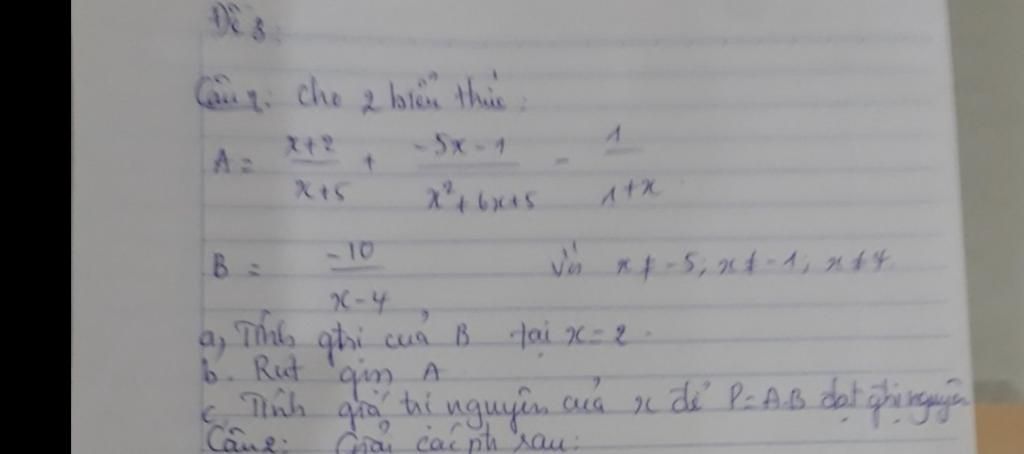 Đề 3:
Câu 1: Cho 2 biểu thức:
A = x+2/x+5 + -5x-1/x²+6x+5 - 1/1+x
B = -10/x-4 với x ≠ -5; x ≠ -1; x ≠ 4
a, Tính gtri của B tại x = 2.
b. Rut gọn A
c, Tính giá trị nguyên của x để P = A.B đạt gtrị nguyên
Câu 2: Giải các ph sau: